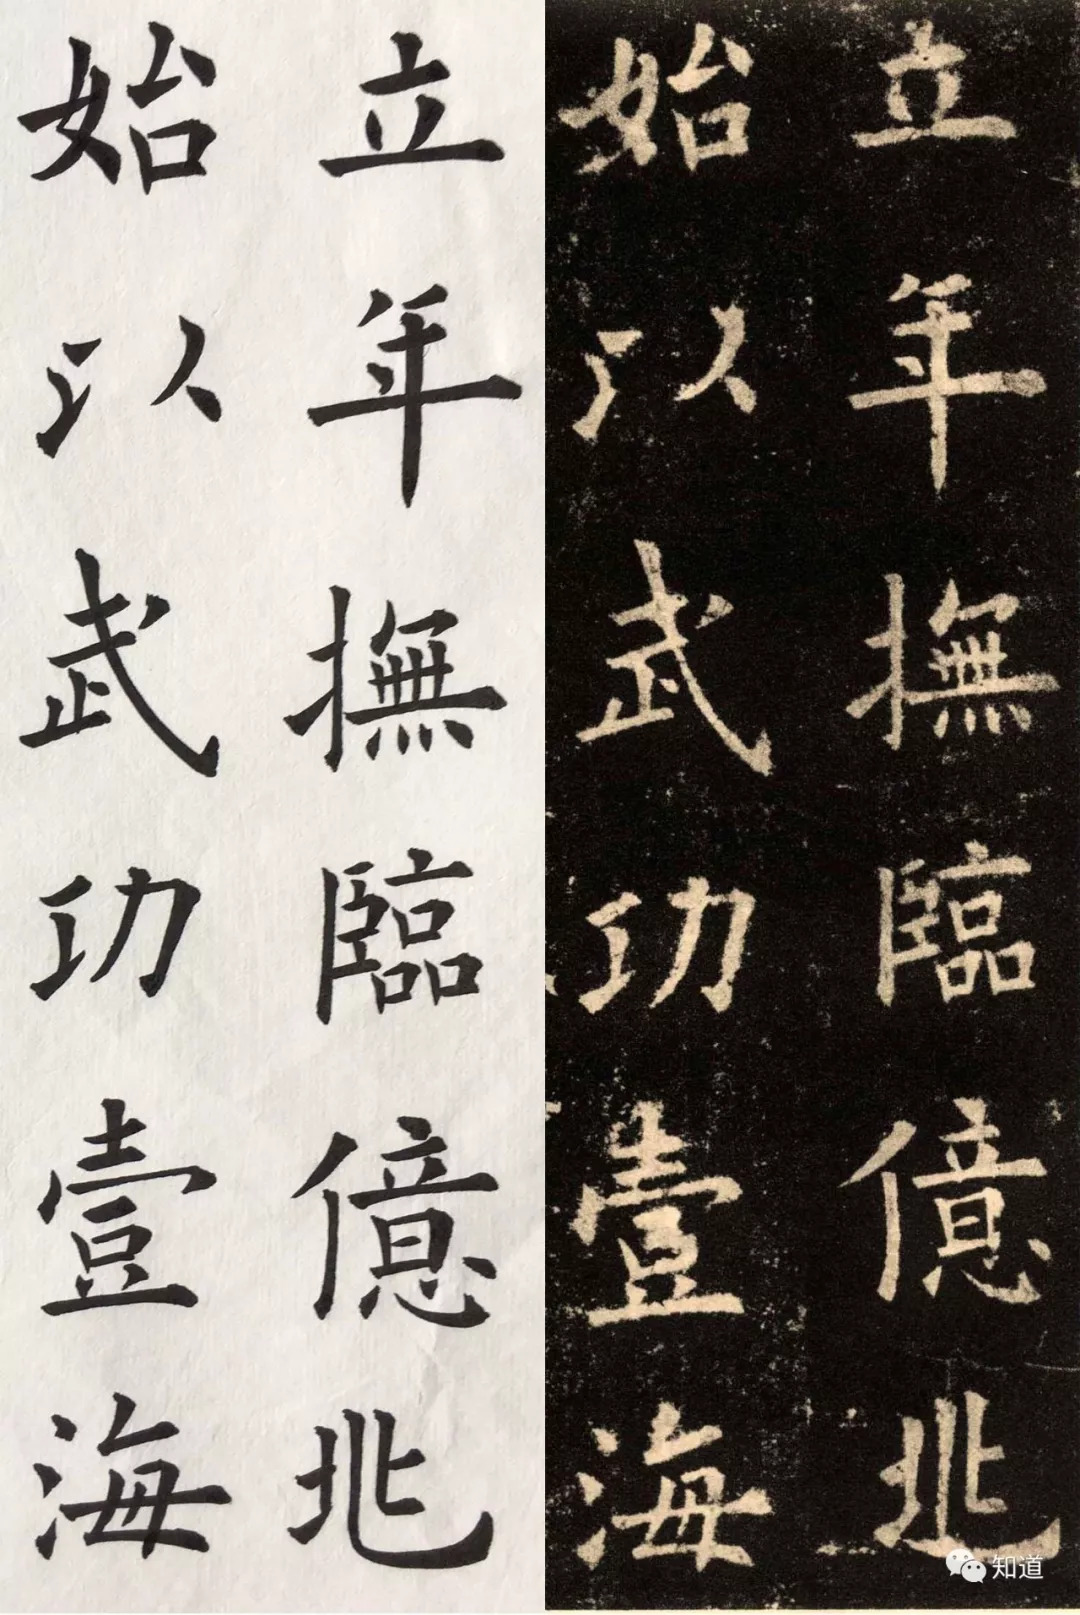 立年撫臨億兆
始以武功壹海
立年撫臨億兆
始以武功壹海
知道